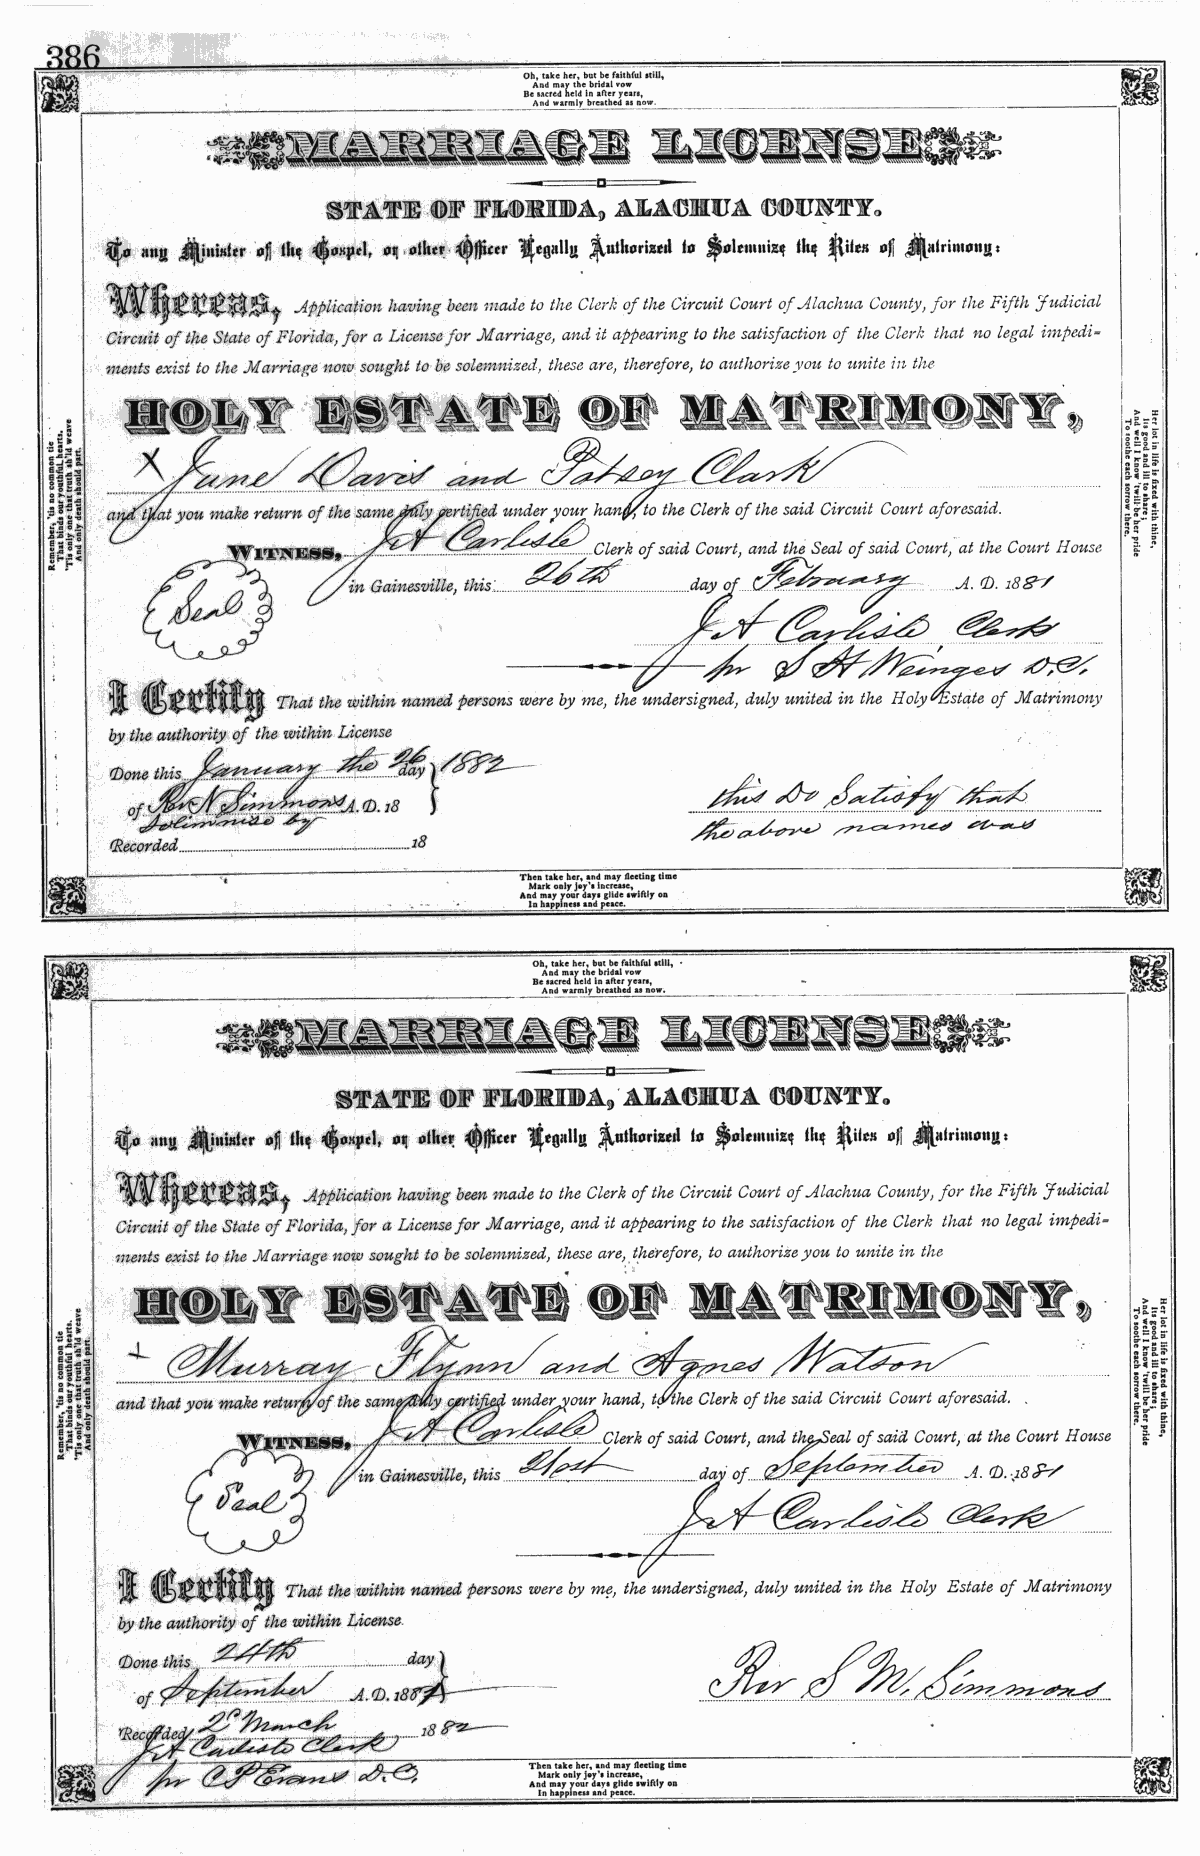 386
Oh, take her, but be faithful still,
And may the bridal vow
Be sacred held in after years,
And warmly breathed as now.
MARRIAGE LICENSE
STATE OF FLORIDA, ALACHUA COUNTY.
To any Minister of the Gospel, or other Officer Legally Authorized to Solemnize the Rites of Matrimony:
Whereas, Application having been made to the Clerk of the Circuit Court of Alachua County, for the Fifth Judicial
Circuit of the State of Florida, for a License for Marriage, and it appearing to the satisfaction of the Clerk that no legal impedi-
ments exist to the Marriage now sought to be solemnized, these are, therefore, to authorize you to unite in the
HOLY ESTATE OF MATRIMONY,
X June Davis and Patsey Clark
and that you make return of the same duly certified under your hand, to the Clerk of the said Circuit Court aforesaid.
WITNESS, J A Carlisle Clerk of said Court, and the Seal of said Court, at the Court House
in Gainesville, this 26th day of February A. D. 1881
Seal
J A Carlisle Clerk
pr S H Weinges D.C.
I Certify That the within named persons were by me, the undersigned, duly united in the Holy Estate of Matrimony
by the authority of the within License
Done this January the 26 day 1882
of Rev N Simmons A. D. 18
this Do Satisfy that
Solimnise by
the above names was
Recorded 18
Then take her, and may fleeting time
Mark only joy's increase,
And may your days glide swiftly on
In happiness and peace.
Remember, 'tis no common tie
That binds our youthful hearts,
'Tis only one that truth sh'ld weave
And only death should part.
Her lot in life is fixed with thine,
Its good and ill to share;
And well I know 'twill be her pride
To soothe each sorrow there.
Oh, take her, but be faithful still,
And may the bridal vow
Be sacred held in after years,
And warmly breathed as now.
MARRIAGE LICENSE
STATE OF FLORIDA, ALACHUA COUNTY.
To any Minister of the Gospel, or other Officer Legally Authorized to Solemnize the Rites of Matrimony:
Whereas, Application having been made to the Clerk of the Circuit Court of Alachua County, for the Fifth Judicial
Circuit of the State of Florida, for a License for Marriage, and it appearing to the satisfaction of the Clerk that no legal impedi-
ments exist to the Marriage now sought to be solemnized, these are, therefore, to authorize you to unite in the
HOLY ESTATE OF MATRIMONY,
+ Murray Flynn and Agnes Watson
and that you make return of the same duly certified under your hand, to the Clerk of the said Circuit Court aforesaid.
WITNESS, J A Carlisle Clerk of said Court, and the Seal of said Court, at the Court House
in Gainesville, this 21st day of September A. D. 1881
Seal
J A Carlisle Clerk
I Certify That the within named persons were by me, the undersigned, duly united in the Holy Estate of Matrimony
by the authority of the within License.
Done this 24th day
of September A. D. 1881
Rev S M. Simmons
Recorded 2d March 1882
J A Carlisle Clerk
pr C P Evans D.C.
Then take her, and may fleeting time
Mark only joy's increase,
And may your days glide swiftly on
In happiness and peace.
Remember, 'tis no common tie
That binds our youthful hearts.
'Tis only one that truth sh'ld weave
And only death should part.
Her lot in life is fixed with thine,
Its good and ill to share;
And well I know 'twill be her pride
To soothe each sorrow there.